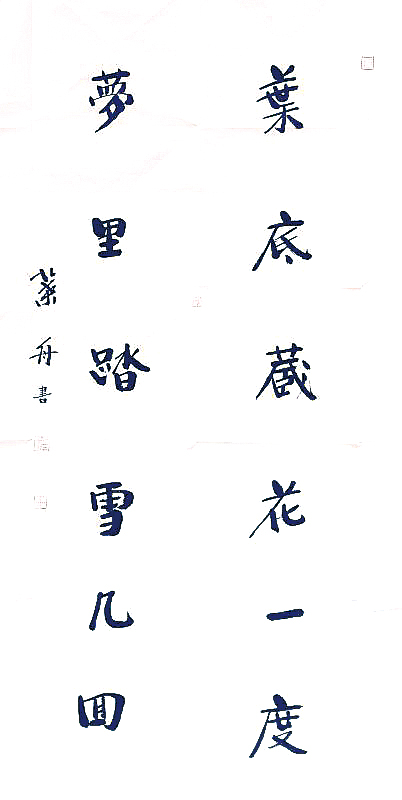 葉底藏花一度
夢里踏雪几囬
舟書